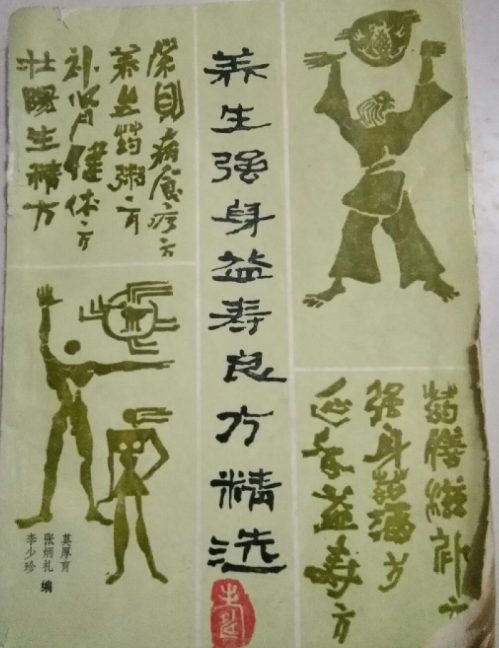 养生强身益寿良方精选
常见病食疗方
养生药粥方
补肾健体方
壮阳生精方
药膳滋补方
强身药酒方
延年益寿方
莫厚育
张炳礼
李少珍
编